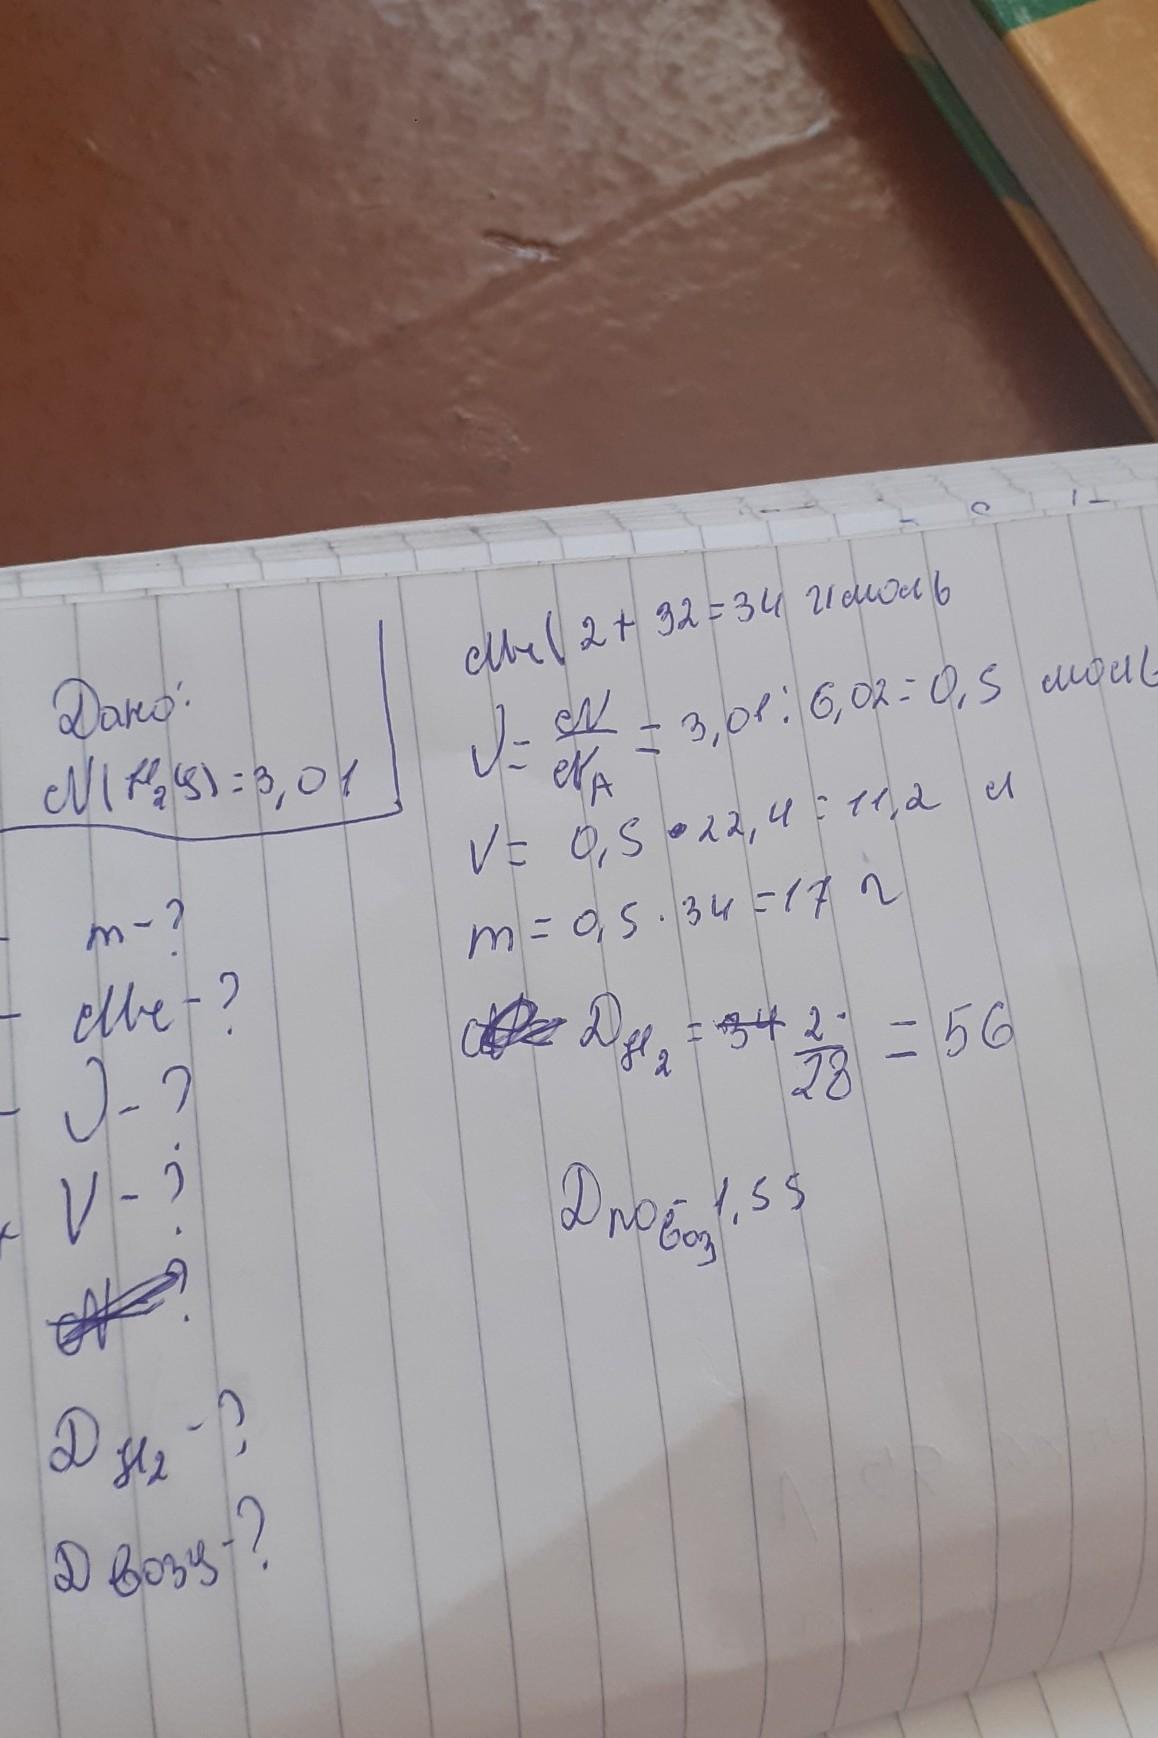 Дано:
N(H₂S) = 3,01
m - ?
Mr - ?
ν - ?
V - ?
D H₂ - ?
D возд - ?
Mr( 2 + 32 = 34 г/моль
ν = N/N_A = 3,01 : 6,02 = 0,5 моль
V = 0,5 • 22,4 = 11,2 л
m = 0,5 · 34 = 17 г
D H₂ = 34 2/28 = 56
D по воз = 1,55